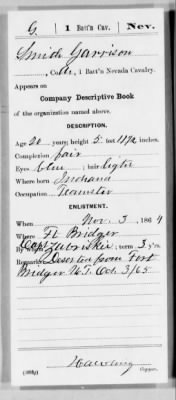 G. | 1 Batt'n Cav. | Nev.
Smith Garrison
, Co. , 1 Batt'n Nevada Cavalry.
Appears on
Company Descriptive Book
of the organization named above.
DESCRIPTION.
Age 20 years; height 5 feet 11 1/2 inches.
Complexion fair
Eyes blue ; hair light
Where born Indiana
Occupation Teamster
ENLISTMENT.
When Nov. 3 , 1864
Where Ft Bridger
By whom Capt Zabriskie ; term 3 y'rs.
Remarks: Deserted from Fort
Bridger U.T. Oct 3/65
Copyist.